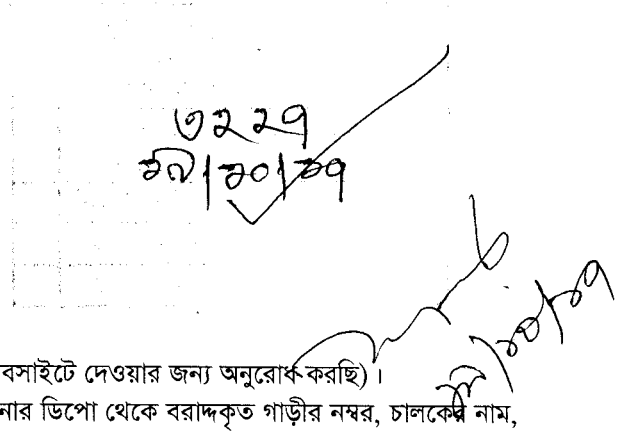 ৩২২৭
১৯/১০/১৭
/১০/১৭
বসাইটে দেওয়ার জন্য অনুরোধ করছি)।
নার ডিপো থেকে বরাদ্দকৃত গাড়ীর নম্বর, চালকের নাম,